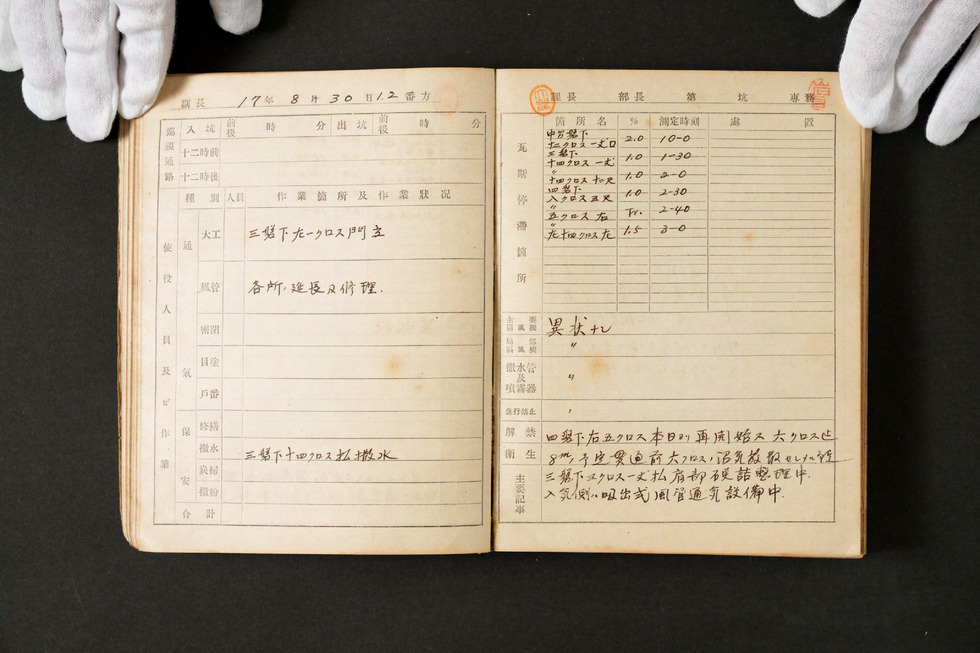 副長 17年8月30日1.2番方
巡視通路 入坑 前後 時 分 出坑 前後 時 分
十二時前
十二時後
種別 人員 作業箇所及作業狀況
使役人員及ビ作業
通氣
大工 三盤下左一クロス門立
風管 各所、延長及修理.
密閉
目塗
戶番
保安
修繕
撒水 三盤下十四クロス払撒水
炭掃
撒粉
合計
課長 部長 第 坑 専務
瓦斯停滯箇所
箇所名 % 測定時刻 處置
十二クロス一丈口 2.0 10-0
三盤下
十四クロス一丈 1.0 1-30
〃
十四クロス十二尺 1.0 2-0
四盤下
入クロス五尺 1.0 2-30
〃
五クロス右 Tr. 2-40
〃
左十四クロス左 1.5 3-0
主要扇風機 異状ナシ
局部扇風機 〃
撒水管及噴霧器 〃
解禁 四盤下右五クロス本日ヨリ再開始ス 六クロス迄
衛生 8m 予定貫通前六クロス、沼気放散セシメル
主要記事 三盤下 クロス一丈払肩部硬詰整理中.
入気側ハ吸出式風管通気設備中.